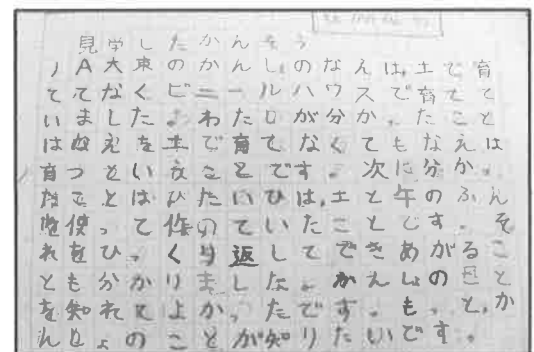 見学したかんそう
A大東のかんしょのなえは,土で育
ててなくビニールハウスで育てて
いました。わたしが分かったこと
はなえを土で育てなくてもなえは
育つということです。次に分かっ
たことはひたいひは,土と牛のふん
を使って作っていたことです。そ
れをひっくり返してできあがること
とも分かりました。かんしょのこと
を知れてよかったです。もっと,か
んしょのことが知りたいです。